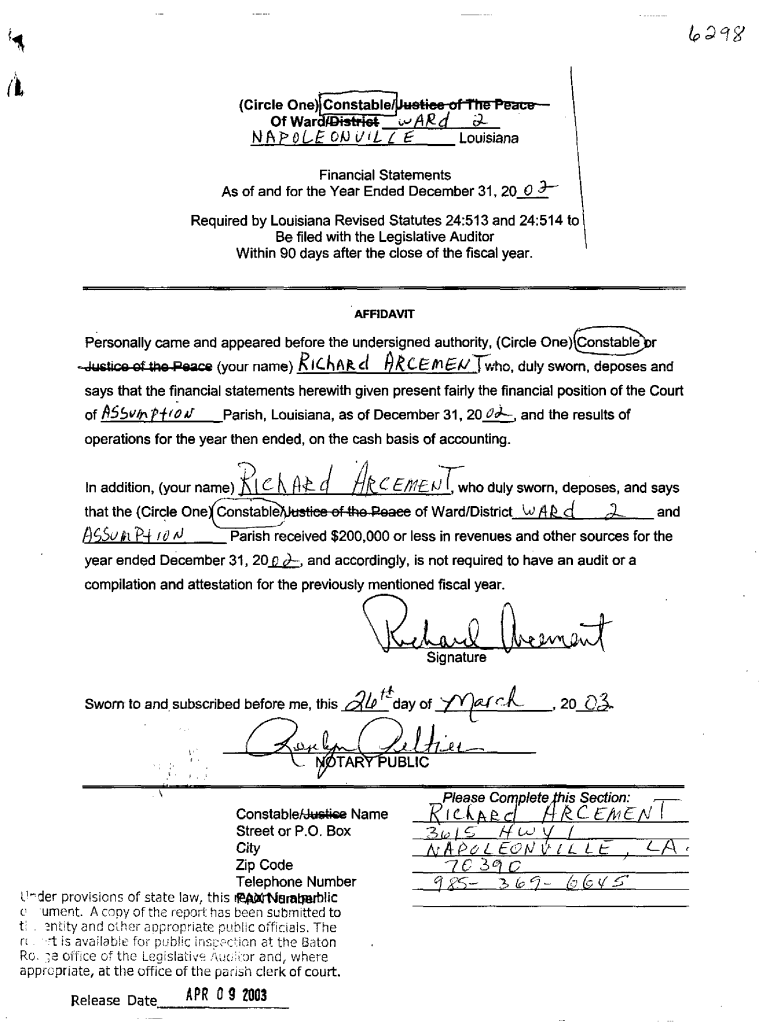 6298
(Circle One) Constable/Justice of The Peace
Of Ward/District WARd 2
NAPOLEONVILLE Louisiana
Financial Statements
As of and for the Year Ended December 31, 20 02
Required by Louisiana Revised Statutes 24:513 and 24:514 to
Be filed with the Legislative Auditor
Within 90 days after the close of the fiscal year.
AFFIDAVIT
Personally came and appeared before the undersigned authority, (Circle One) Constable or
Justice of the Peace (your name) RIChARd ARCEMENT who, duly sworn, deposes and
says that the financial statements herewith given present fairly the financial position of the Court
of ASSumPtioN Parish, Louisiana, as of December 31, 20 02, and the results of
operations for the year then ended, on the cash basis of accounting.
In addition, (your name) RIChARd ARCEMENT, who duly sworn, deposes, and says
that the (Circle One) Constable/Justice of the Peace of Ward/District WARd 2 and
ASSumPtioN Parish received $200,000 or less in revenues and other sources for the
year ended December 31, 20 02, and accordingly, is not required to have an audit or a
compilation and attestation for the previously mentioned fiscal year.
Richard Arcement
Signature
Sworn to and subscribed before me, this 26th day of March, 20 03.
Peltier
NOTARY PUBLIC
Please Complete this Section:
Constable/Justice Name RIChARd ARCEMENT
Street or P.O. Box 3615 HWY 1
City NAPOLEONVILLE, LA.
Zip Code 70390
Telephone Number 985-369-6645
Under provisions of state law, this public
document. A copy of the report has been submitted to
the entity and other appropriate public officials. The
report is available for public inspection at the Baton
Rouge office of the Legislative Auditor and, where
appropriate, at the office of the parish clerk of court.
Release Date APR 09 2003